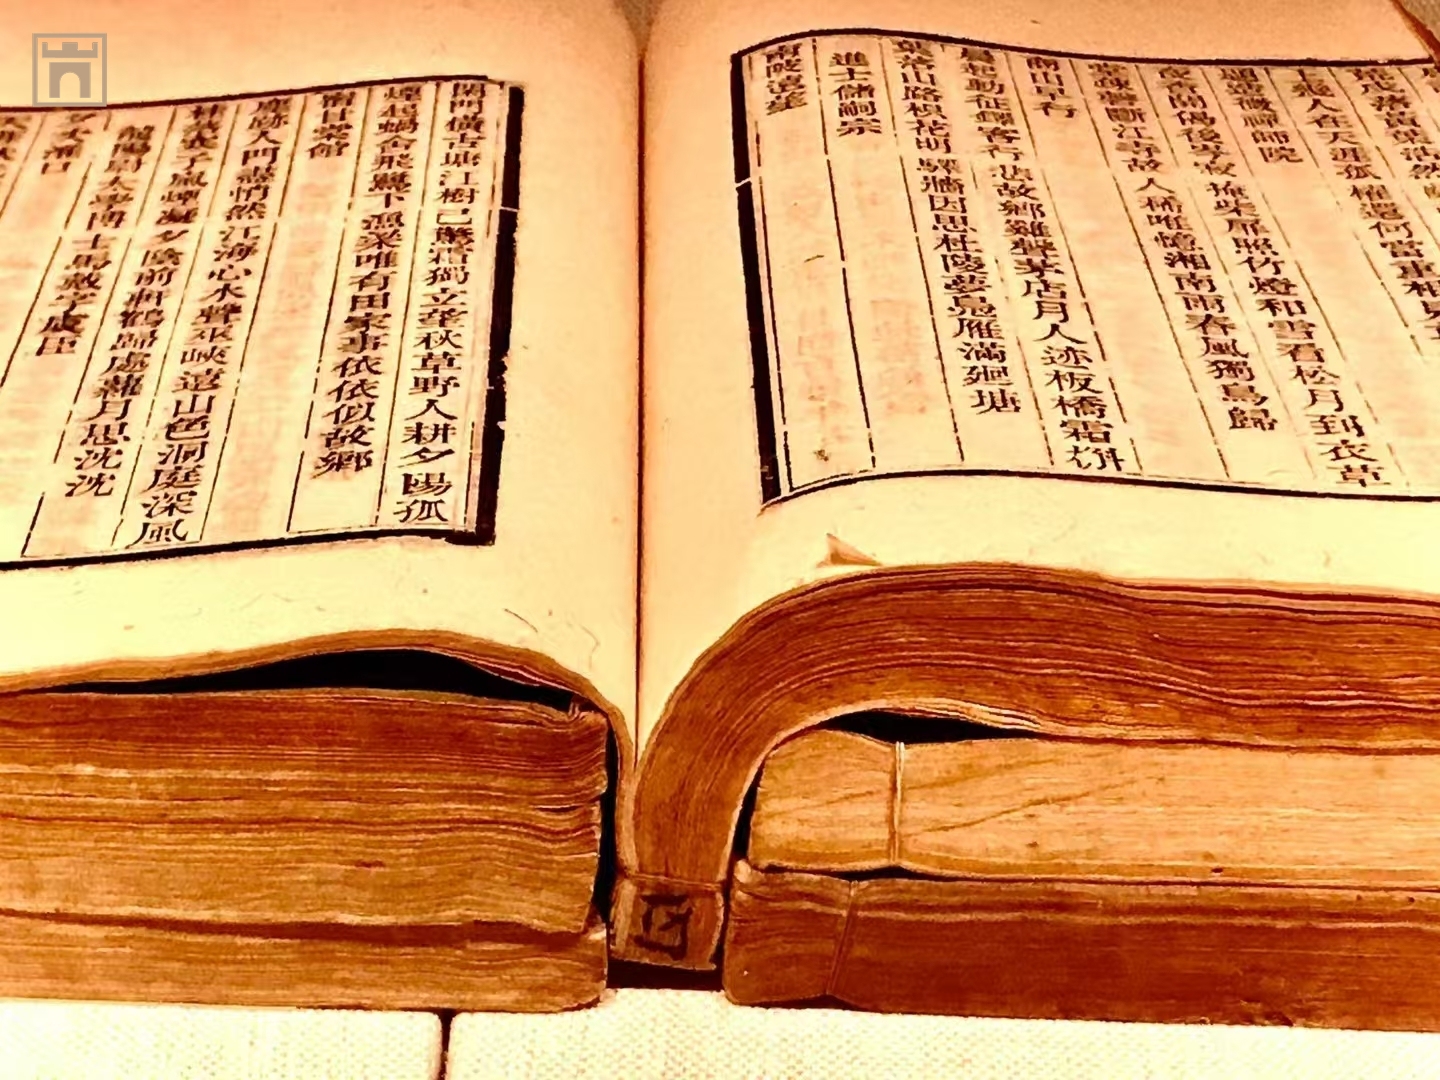 荒戍落黃葉浩然
上幾人在天涯孤棹還何當重相見
題造微禪師院
夜香聞偈後岑寂掩柴扉照竹燈和雪看松月到衣草
堂疏磬斷江寺故人稀唯憶湘南雨春風獨鳥歸
商山早行
晨起動征鐸客行悲故鄉雞聲茅店月人迹板橋霜槲
葉落山路枳花明驛牆因思杜陵夢鳧雁滿迴塘
進士儲嗣宗
南陂遠望
閑門橫古塘江樹已驚霜獨立望秋草野人耕夕陽孤
煙起蝸舍飛鷺下漁梁唯有田家事依依似故鄉
宿甘棠館
塵跡入門盡悄然江海心水聲巫峽遠山色洞庭深風
凝夕陰前軒鶴歸處蘿月思沈沈
龍陽尉太學博士馬戴字虞臣
夕次淮口